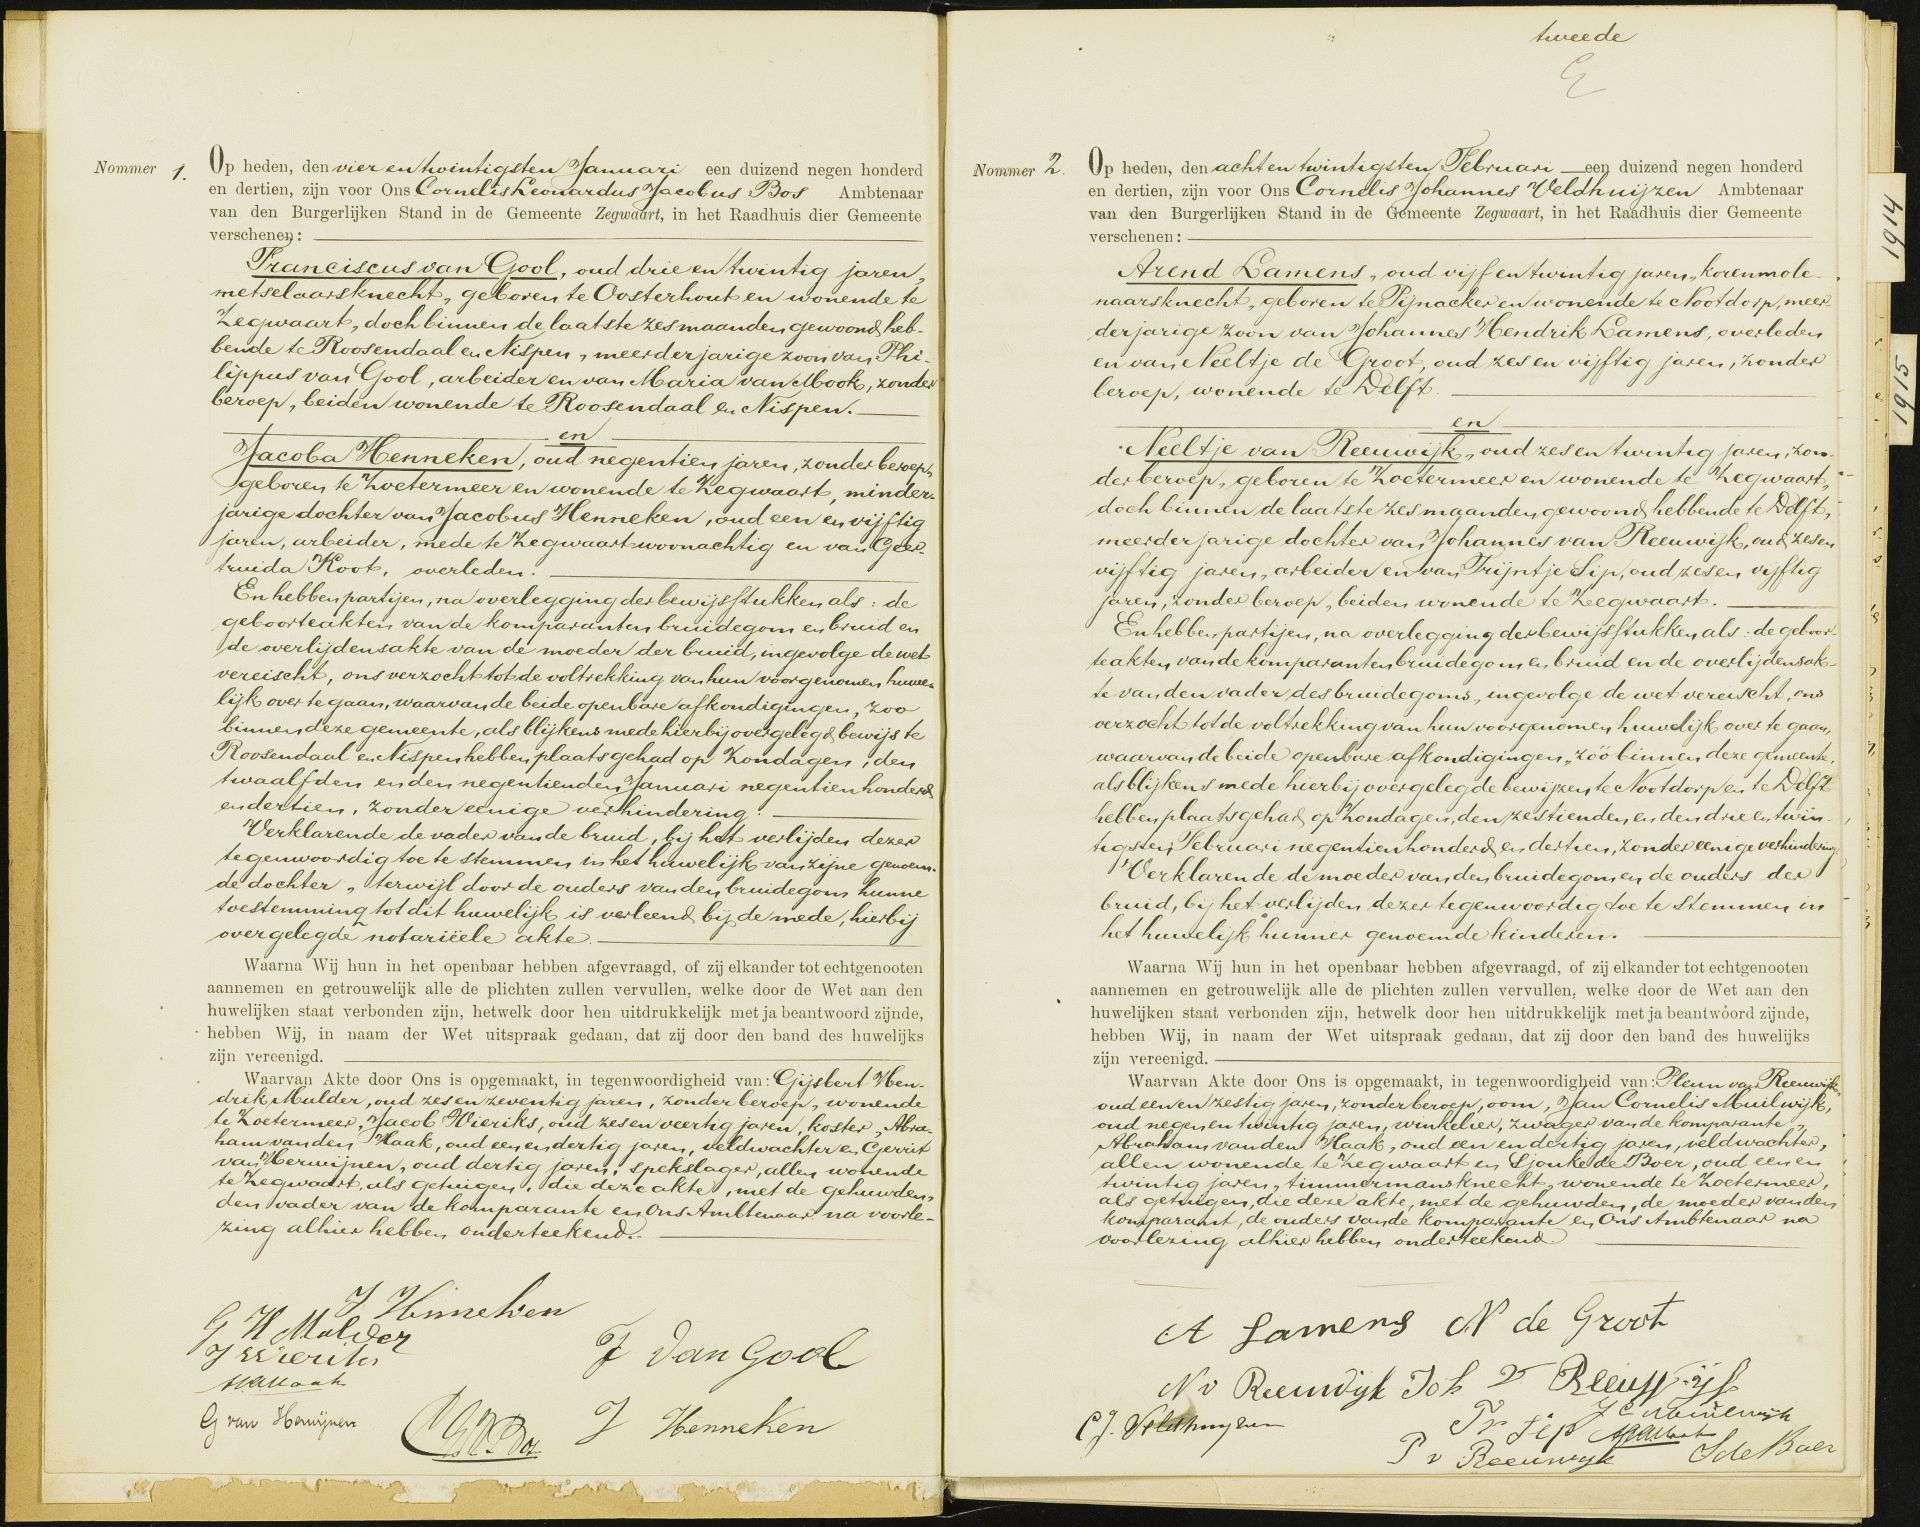 Nommer 1.
Op heden, den vier en twintigsten Januari een duizend negen honderd
en dertien, zijn voor Ons Cornelis Leonardus Jacobus Bos Ambtenaar
van den Burgerlijken Stand in de Gemeente Zegwaart, in het Raadhuis dier Gemeente
verschenen:
Franciscus van Gool, oud drie en twintig jaren,
metselaarsknecht, geboren te Oosterhout en wonende te
Zegwaart, doch binnen de laatste zes maanden gewoond heb-
bende te Roosendaal en Nispen, meerderjarige zoon van Phi-
lippus van Gool, arbeider en van Maria van Mook, zonder
beroep, beiden wonende te Roosendaal en Nispen.
en
Jacoba Henneken, oud negentien jaren, zonder beroep,
geboren te Zoetermeer en wonende te Zegwaart, minder-
jarige dochter van Jacobus Henneken, oud een en vijftig
jaren, arbeider, mede te Zegwaart woonachtig en van Geer-
truida Koot, overleden.
En hebben partijen, na overlegging der bewijsstukken als: de
geboorteakten van de komparanten bruidegom en bruid en
de overlijdensakte van de moeder der bruid, ingevolge de wet
vereischt, ons verzocht tot de voltrekking van hun voorgenomen huwe-
lijk over te gaan, waarvan de beide openbare afkondigingen, zoo
binnen deze gemeente, als blijkens mede hierbij overgelegd bewijs te
Roosendaal en Nispen hebben plaats gehad op Zondagen, den
twaalfden en den negentienden Januari negentienhonderd
en dertien, zonder eenige verhindering.
Verklarende de vader van de bruid, bij het verlijden dezer
tegenwoordig toe te stemmen in het huwelijk van zijne genoem-
de dochter, terwijl door de ouders van den bruidegom hunne
toestemming tot dit huwelijk is verleend bij de mede, hierbij
overgelegde notariëele akte.
Waarna Wij hun in het openbaar hebben afgevraagd, of zij elkander tot echtgenooten
aannemen en getrouwelijk alle de plichten zullen vervullen, welke door de Wet aan den
huwelijken staat verbonden zijn, hetwelk door hen uitdrukkelijk met ja beantwoord zijnde,
hebben Wij, in naam der Wet uitspraak gedaan, dat zij door den band des huwelijks
zijn vereenigd.
Waarvan Akte door Ons is opgemaakt, in tegenwoordigheid van: Gijsbert Hen-
drik Mulder, oud zes en zeventig jaren, zonder beroep, wonende
te Zoetermeer, Jacob Wieriks, oud zes en veertig jaren, koster, Abra-
ham van den Haak, oud een en dertig jaren, veldwachter en Gerrit
van Herwijnen, oud dertig jaren, spekslager, allen wonende
te Zegwaart, als getuigen, die deze akte, met de gehuwden,
den vader van de komparante en Ons Ambtenaar na voorle-
zing alhier hebben onderteekend.
J Henneken
G H Mulder
J Wieriks
F van Gool
G van Herwijnen
J Henneken
tweede
Nommer 2.
Op heden, den acht en twintigsten Februari een duizend negen honderd
en dertien, zijn voor Ons Cornelis Johannes Veldhuijzen Ambtenaar
van den Burgerlijken Stand in de Gemeente Zegwaart, in het Raadhuis dier Gemeente
verschenen:
Arend Lamens, oud vijf en twintig jaren, korenmole-
naarsknecht, geboren te Pijnacker en wonende te Nootdorp, meer-
derjarige zoon van Johannes Hendrik Lamens, overleden
en van Neeltje de Groot, oud zes en vijftig jaren, zonder
beroep, wonende te Delft.
en
Neeltje van Reeuwijk, oud zes en twintig jaren, zon-
der beroep, geboren te Zoetermeer en wonende te Zegwaart,
doch binnen de laatste zes maanden gewoond hebbende te Delft,
meerderjarige dochter van Johannes van Reeuwijk, oud zes en
vijftig jaren, arbeider en van Trijntje Sip, oud zes en vijftig
jaren, zonder beroep, beiden wonende te Zegwaart.
En hebben partijen, na overlegging der bewijsstukken als: de geboor-
teakten van de komparanten bruidegom en bruid en de overlijdensak-
te van den vader des bruidegoms, ingevolge de wet vereischt, ons
verzocht tot de voltrekking van hun voorgenomen huwelijk over te gaan,
waarvan de beide openbare afkondigingen, zoo binnen deze gemeente,
als blijkens mede hierbij overgelegde bewijzen te Nootdorp en te Delft
hebben plaats gehad op Zondagen, den zestienden en den drie en twin-
tigsten Februari negentienhonderd en dertien, zonder eenige verhindering.
Verklarende de moeder van den bruidegom en de ouders der
bruid, bij het verlijden dezer tegenwoordig toe te stemmen in
het huwelijk hunner genoemde kinderen.
Waarna Wij hun in het openbaar hebben afgevraagd, of zij elkander tot echtgenooten
aannemen en getrouwelijk alle de plichten zullen vervullen, welke door de Wet aan den
huwelijken staat verbonden zijn, hetwelk door hen uitdrukkelijk met ja beantwoord zijnde,
hebben Wij, in naam der Wet uitspraak gedaan, dat zij door den band des huwelijks
zijn vereenigd.
Waarvan Akte door Ons is opgemaakt, in tegenwoordigheid van: Pleun van Reeuwijk,
oud een en zestig jaren, zonder beroep, oom, Jan Cornelis Muilwijk,
oud negen en twintig jaren, winkelier, zwager van de komparante,
Abraham van den Haak, oud een en dertig jaren, veldwachter,
allen wonende te Zegwaart en Sjouke de Boer, oud een en
twintig jaren, timmermansknecht, wonende te Zoetermeer,
als getuigen, die deze akte, met de gehuwden, de moeder van den
komparant, de ouders van de komparante en Ons Ambtenaar na
voorlezing alhier hebben onderteekend
A Lamens N de Groot
N v Reeuwijk Joh v Reeuwijk
C J. Veldhuyzen
Tr Sip
J C Muilwijk
P v Reeuwijk
S de Boer
1914
1915